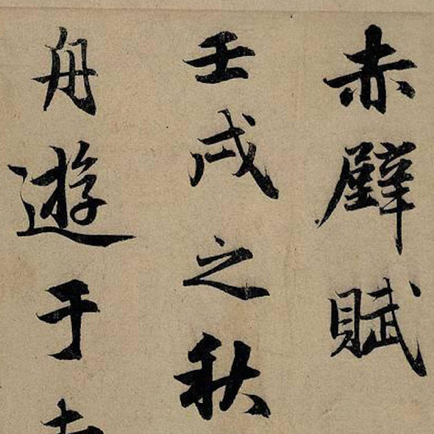 赤壁賦
壬戌之秋
舟遊于